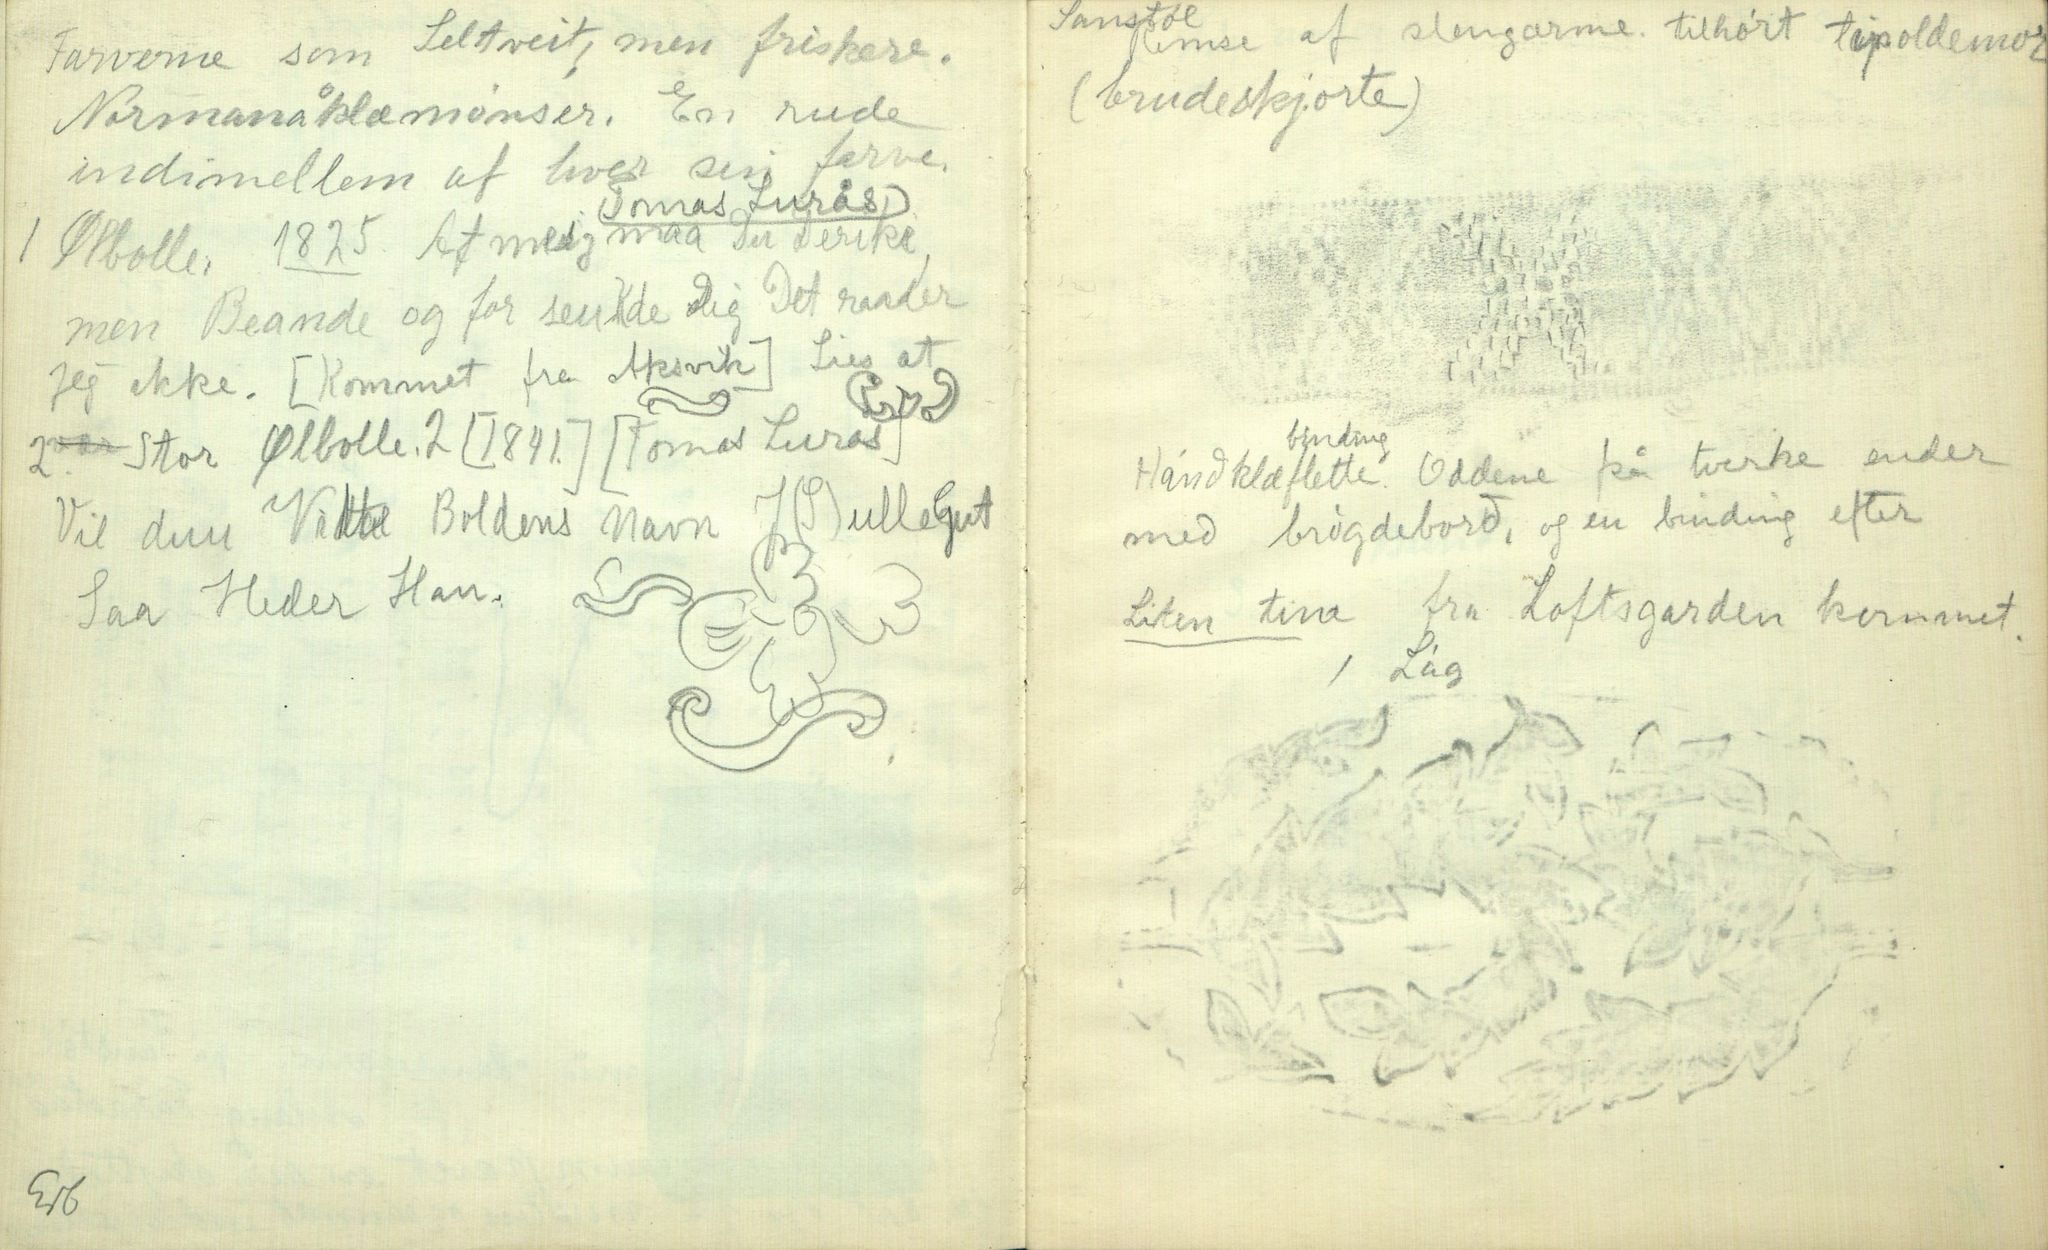 Farverne som Seltveit, men friskere.
Normanåklæmønser. En rude
indimellem af hver sin farve.
(Tomas Lurås)
1 Ølbolle. 1825 Af meig maa Du Derike
men Beande og for senkde Dig Det raader
jeg ikke. [Kommet fra Aksvik] Lies at
2 Stor Ølbolle. 2 [1841.] [Tomas Luras]
Vil duu Vitte Boldens Navn J(S)ulleGut
Saa Heder Han.
Sanstøl
af slengarme. tilhørt tipoldemor
(brudeskjorte)
binding
Håndklæflette. Oddene på tverke ender
med brogdebord, og en binding efter
Liten tine fra Loftsgarden kommet.
1 Låg